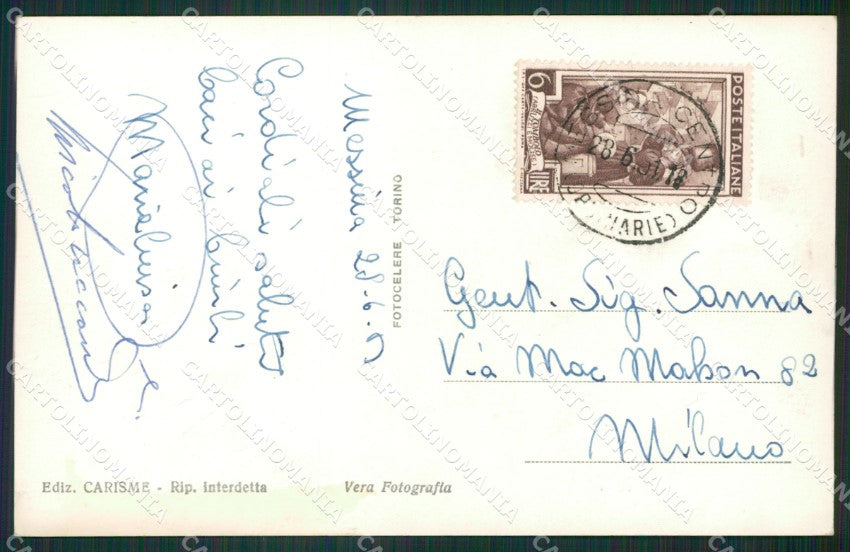 Messina 28.6.51
Cordiali saluti
baci ai bimbi
Marialuisa e
FOTOCELERE TORINO
6
LIRE
POSTE ITALIANE
MESSINA CENTRO
28.6.51.18
Gent. Sig. Sanna
Via Mac Mahon 82
Milano
Ediz. CARISME - Rip. interdetta
Vera Fotografia
CARTOLINOMANIA